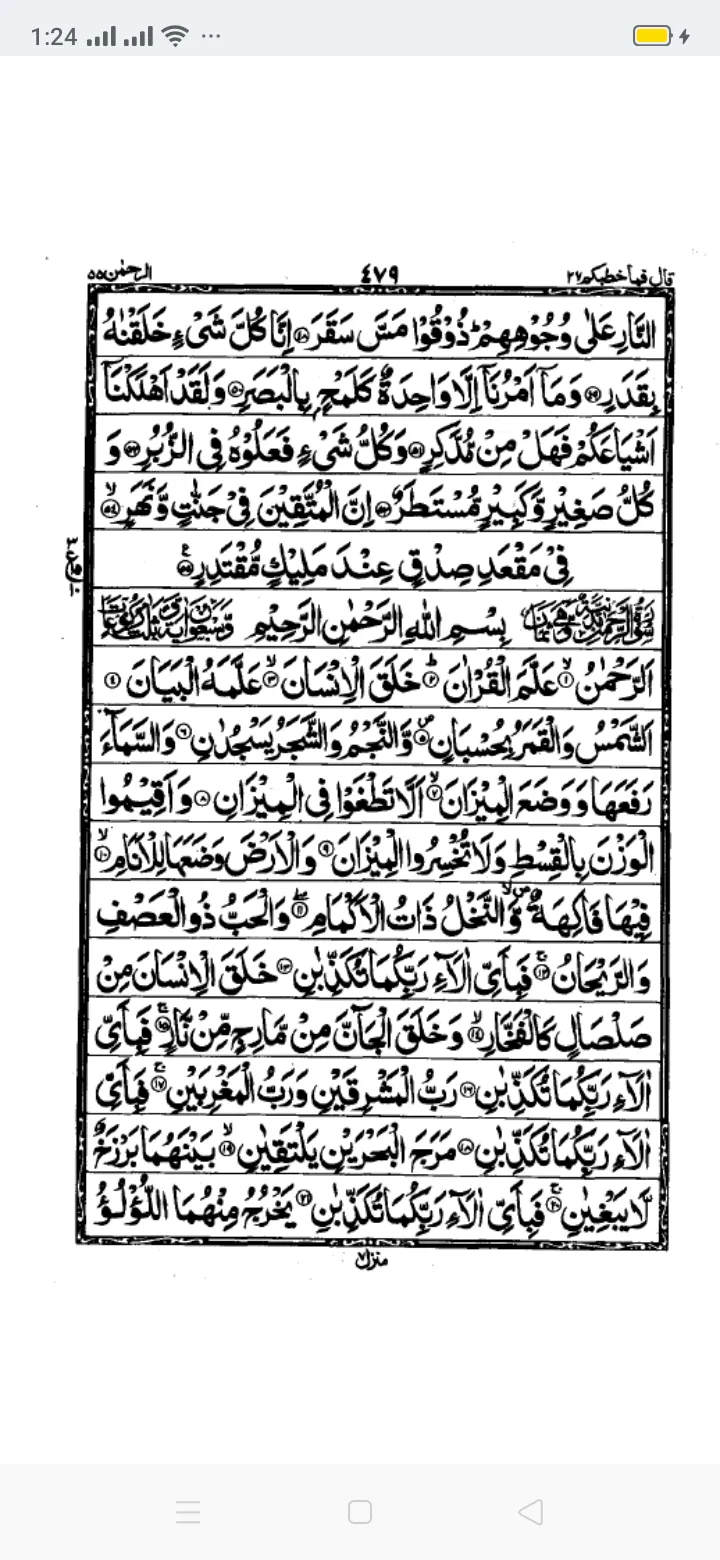 1:24
الرحمٰن ۵۵ ٤٧٩ قال فما خطبكم ٢٧
النَّارِ عَلٰى وُجُوْهِهِمْ ؕ ذُوْقُوْا مَسَّ سَقَرَ ﴿۴۸﴾ اِنَّا كُلَّ شَیْءٍ خَلَقْنٰهُ
بِقَدَرٍ ﴿۴۹﴾ وَمَاۤ اَمْرُنَاۤ اِلَّا وَاحِدَةٌ كَلَمْحٍۭ بِالْبَصَرِ ﴿۵۰﴾ وَلَقَدْ اَهْلَكْنَاۤ
اَشْیَاعَكُمْ فَهَلْ مِنْ مُّدَّكِرٍ ﴿۵۱﴾ وَكُلُّ شَیْءٍ فَعَلُوْهُ فِی الزُّبُرِ ﴿۵۲﴾ وَ
كُلُّ صَغِیْرٍ وَّكَبِیْرٍ مُّسْتَطَرٌ ﴿۵۳﴾ اِنَّ الْمُتَّقِیْنَ فِیْ جَنّٰتٍ وَّنَهَرٍ ﴿۵۴﴾ۙ
فِیْ مَقْعَدِ صِدْقٍ عِنْدَ مَلِیْكٍ مُّقْتَدِرٍ ﴿۵۵﴾
بِسْمِ اللّٰهِ الرَّحْمٰنِ الرَّحِیْمِ
اَلرَّحْمٰنُ ﴿۱﴾ۙ عَلَّمَ الْقُرْاٰنَ ﴿۲﴾ؕ خَلَقَ الْاِنْسَانَ ﴿۳﴾ۙ عَلَّمَهُ الْبَیَانَ ﴿۴﴾
اَلشَّمْسُ وَالْقَمَرُ بِحُسْبَانٍ ﴿۵﴾۪ وَّالنَّجْمُ وَالشَّجَرُ یَسْجُدٰنِ ﴿۶﴾ وَالسَّمَآءَ
رَفَعَهَا وَوَضَعَ الْمِیْزَانَ ﴿۷﴾ۙ اَلَّا تَطْغَوْا فِی الْمِیْزَانِ ﴿۸﴾ وَاَقِیْمُوا
الْوَزْنَ بِالْقِسْطِ وَلَا تُخْسِرُوا الْمِیْزَانَ ﴿۹﴾ وَالْاَرْضَ وَضَعَهَا لِلْاَنَامِ ﴿۱۰﴾ۙ
فِیْهَا فَاكِهَةٌ ۪ۙ وَّالنَّخْلُ ذَاتُ الْاَكْمَامِ ﴿۱۱﴾ۖ وَالْحَبُّ ذُو الْعَصْفِ
وَالرَّیْحَانُ ﴿۱۲﴾ۚ فَبِاَیِّ اٰلَآءِ رَبِّكُمَا تُكَذِّبٰنِ ﴿۱۳﴾ خَلَقَ الْاِنْسَانَ مِنْ
صَلْصَالٍ كَالْفَخَّارِ ﴿۱۴﴾ۙ وَخَلَقَ الْجَآنَّ مِنْ مَّارِجٍ مِّنْ نَّارٍ ﴿۱۵﴾ۚ فَبِاَیِّ
اٰلَآءِ رَبِّكُمَا تُكَذِّبٰنِ ﴿۱۶﴾ رَبُّ الْمَشْرِقَیْنِ وَرَبُّ الْمَغْرِبَیْنِ ﴿۱۷﴾ۚ فَبِاَیِّ
اٰلَآءِ رَبِّكُمَا تُكَذِّبٰنِ ﴿۱۸﴾ مَرَجَ الْبَحْرَیْنِ یَلْتَقِیٰنِ ﴿۱۹﴾ۙ بَیْنَهُمَا بَرْزَخٌ
لَّا یَبْغِیٰنِ ﴿۲۰﴾ۚ فَبِاَیِّ اٰلَآءِ رَبِّكُمَا تُكَذِّبٰنِ ﴿۲۱﴾ یَخْرُجُ مِنْهُمَا اللُّؤْلُؤُ
منزل ٧